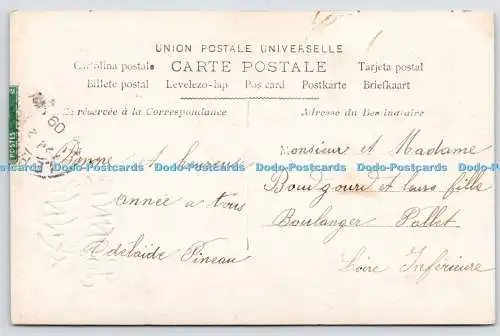 UNION POSTALE UNIVERSELLE
Cartolina postale CARTE POSTALE Tarjeta postal
Billete postal Levelezo-lap Postcard Postkarte Briefkaart
réservée à la Correspondance
Adresse du Destinataire
POSTES
09
Bonne et heureuse
année a tous
Adelaïde Pineau
Monsieur et Madame
et leurs fille
Boulanger Pallet
Loire Inférieure
Dodo-Postcards Dodo-Postcards Dodo-Postcards Dodo-Postcards Dodo-Postcards